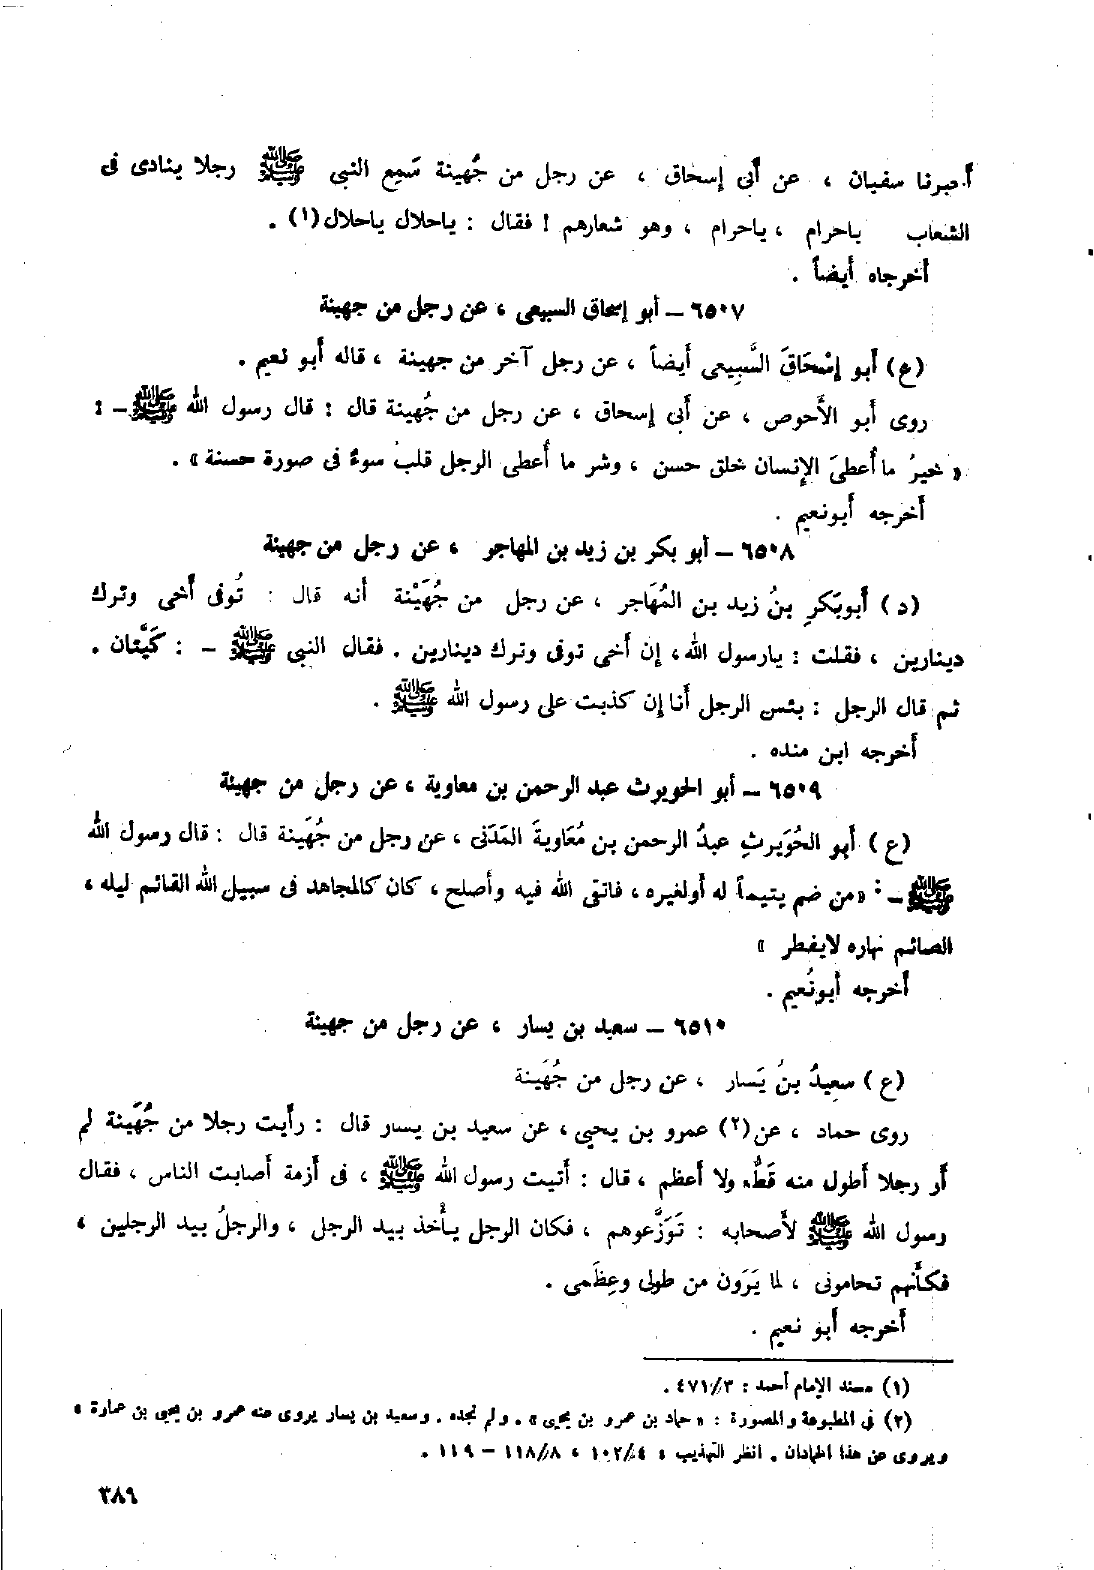 أخبرنا سفيان ، عن أبى إسحاق ، عن رجل من جُهينة سَمِع النبى ﷺ رجلا ينادى فى
الشعاب ياحرام ، ياحرام ، وهو شعارهم ! فقال : ياحلال ياحلال(١) .
أخرجاه أيضاً .
٦٥٠٧ – أبو إسحاق السبيعى ، عن رجل من جهينة
(ع) أبو إسْحَاقَ السَّبِيعى أيضاً ، عن رجل آخر من جهينة ، قاله أبو نعيم .
روى أبو الأَحوص ، عن أبى إسحاق ، عن رجل من جُهينة قال : قال رسول الله ﷺ – :
« خيرُ ما أُعطىَ الإنسان خلق حسن ، وشر ما أُعطى الرجل قلبُ سوءٌ فى صورة حسنة » .
أخرجه أبونعيم .
٦٥٠٨ – أبو بكر بن زيد بن المهاجر ، عن رجل من جهينة
(د) أبوبَكرِ بنُ زيد بن المُهَاجر ، عن رجل من جُهَيْنة أنه قال : تُوفى أخى وترك
دينارين ، فقلت : يارسول الله، إن أخى توفى وترك دينارين . فقال النبى ﷺ – : كَيَّتان .
ثم قال الرجل : بئس الرجل أنا إن كذبت على رسول الله ﷺ .
أخرجه ابن منده .
٦٥٠٩ – أبو الحويرث عبد الرحمن بن معاوية ، عن رجل من جهينة
(ع) أبو الحُوَيرثِ عبدُ الرحمن بن مُعَاويةَ المَدَنى ، عن رجل من جُهَينة قال : قال رسول الله
ﷺ – : «من ضم يتيماً له أولغيره ، فاتقى الله فيه وأصلح ، كان كالمجاهد فى سبيل الله القائم ليله ،
الصائم نهاره لايفطر »
أخرجه أبونُعيم .
٦٥١٠ – سعيد بن يسار ، عن رجل من جهينة
(ع) سعيدُ بنُ يَسار ، عن رجل من جُهَينة
روى حماد ، عن(٢) عمرو بن يحيى ، عن سعيد بن يسار قال : رأيت رجلا من جُهَينة لم
أر رجلا أطول منه قَطُّ، ولا أعظم ، قال : أتيت رسول الله ﷺ ، فى أزمة أصابت الناس ، فقال
رسول الله ﷺ لأصحابه : تَوَزَّعوهم ، فكان الرجل يأخذ بيد الرجل ، والرجلُ بيد الرجلين ،
فكأنهم تحامونى ، لما يَرَون من طولى وعِظَمى .
أخرجه أبو نعيم .
(١) مسند الإمام أحمد : ٤٧١/٣ .
(٢) فى المطبوعة والمصورة : « حماد بن عمرو بن يحيى » . ولم نجده . وسعيد بن يسار يروى عنه عمرو بن يحيى بن عمارة ،
ويروى عن هذا الحمادان . انظر التهذيب : ١٠٢/٤ ، ١١٨/٨ – ١١٩ .
٣٨٩